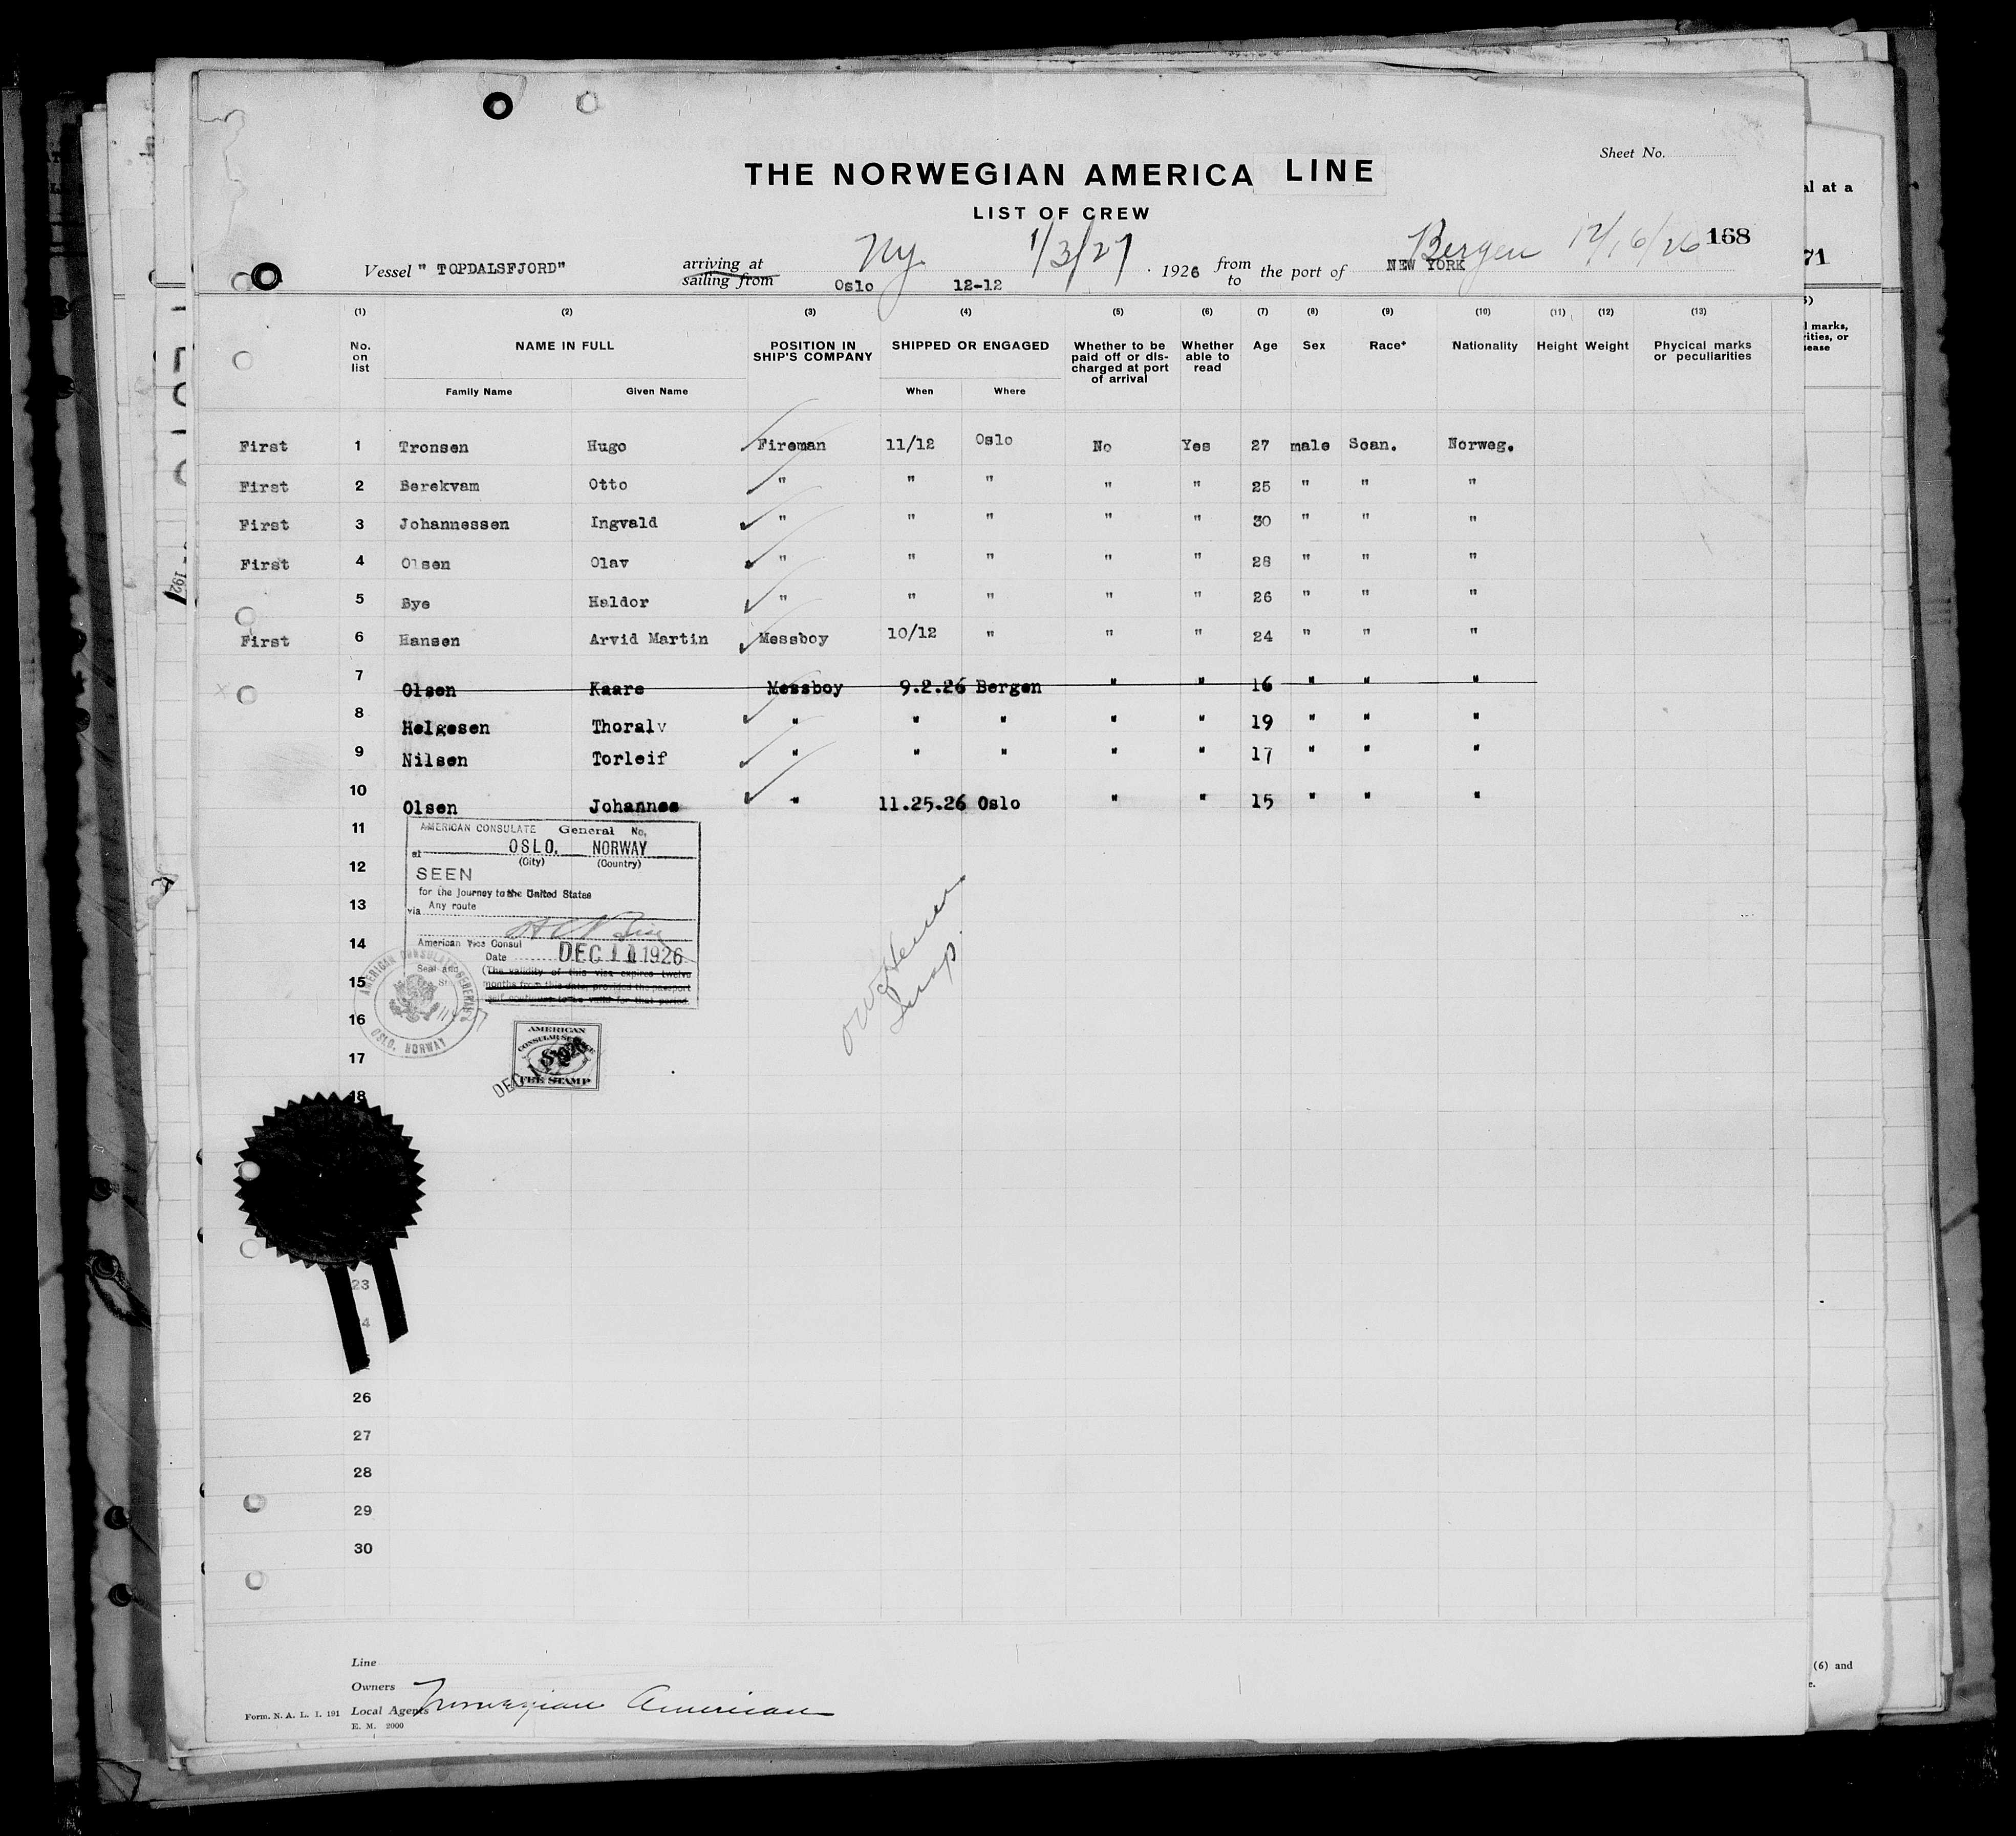 Sheet No.
THE NORWEGIAN AMERICA LINE
LIST OF CREW
168
Vessel " TOPDALSFJORD" arriving at sailing from Ny. 1/3/27 Oslo 12-12 1926 from to the port of NEW YORK Bergen 12/16/26
(1) (2) (3) (4) (5) (6) (7) (8) (9) (10) (11) (12) (13)
No. on list NAME IN FULL POSITION IN SHIP'S COMPANY SHIPPED OR ENGAGED Whether to be paid off or discharged at port of arrival Whether able to read Age Sex Race* Nationality Height Weight Physical marks or peculiarities
Family Name Given Name When Where
First 1 Tronsen Hugo Fireman 11/12 Oslo No Yes 27 male Scan. Norweg.
First 2 Berekvam Otto " " " " " 25 " " "
First 3 Johannessen Ingvald " " " " " 30 " " "
First 4 Olsen Olav " " " " " 28 " " "
5 Bye Haldor " " " " " 26 " " "
First 6 Hansen Arvid Martin Messboy 10/12 " " " 24 " " "
7 Olsen Kaare Messboy 9.2.26 Bergen " " 16 " " "
8 Helgesen Thoralv " " " " " 19 " " "
9 Nilsen Torleif " " " " " 17 " " "
10 Olsen Johannes " 11.25.26 Oslo " " 15 " " "
11
12
13
14
15
16
17
18
AMERICAN CONSULATE General No.
at OSLO, NORWAY
(City) (Country)
SEEN
for the Journey to the United States
via Any route
American Vice Consul
Date DEC 11 1926
Seal and
(The validity of this visa expires twelve
months from this date, provided the passport
self continues to be valid for that period.
AMERICAN CONSULATE GENERAL
OSLO, NORWAY
AMERICAN
CONSULAR SERVICE
FEE STAMP
DEC 1926
Insp.
23
26
27
28
29
30
Line
Owners
Local Agents Norwegian American
Form. N. A. L. I. 191
E. M. 2000
al at a
71
marks,
rities, or
sease
(6) and
192